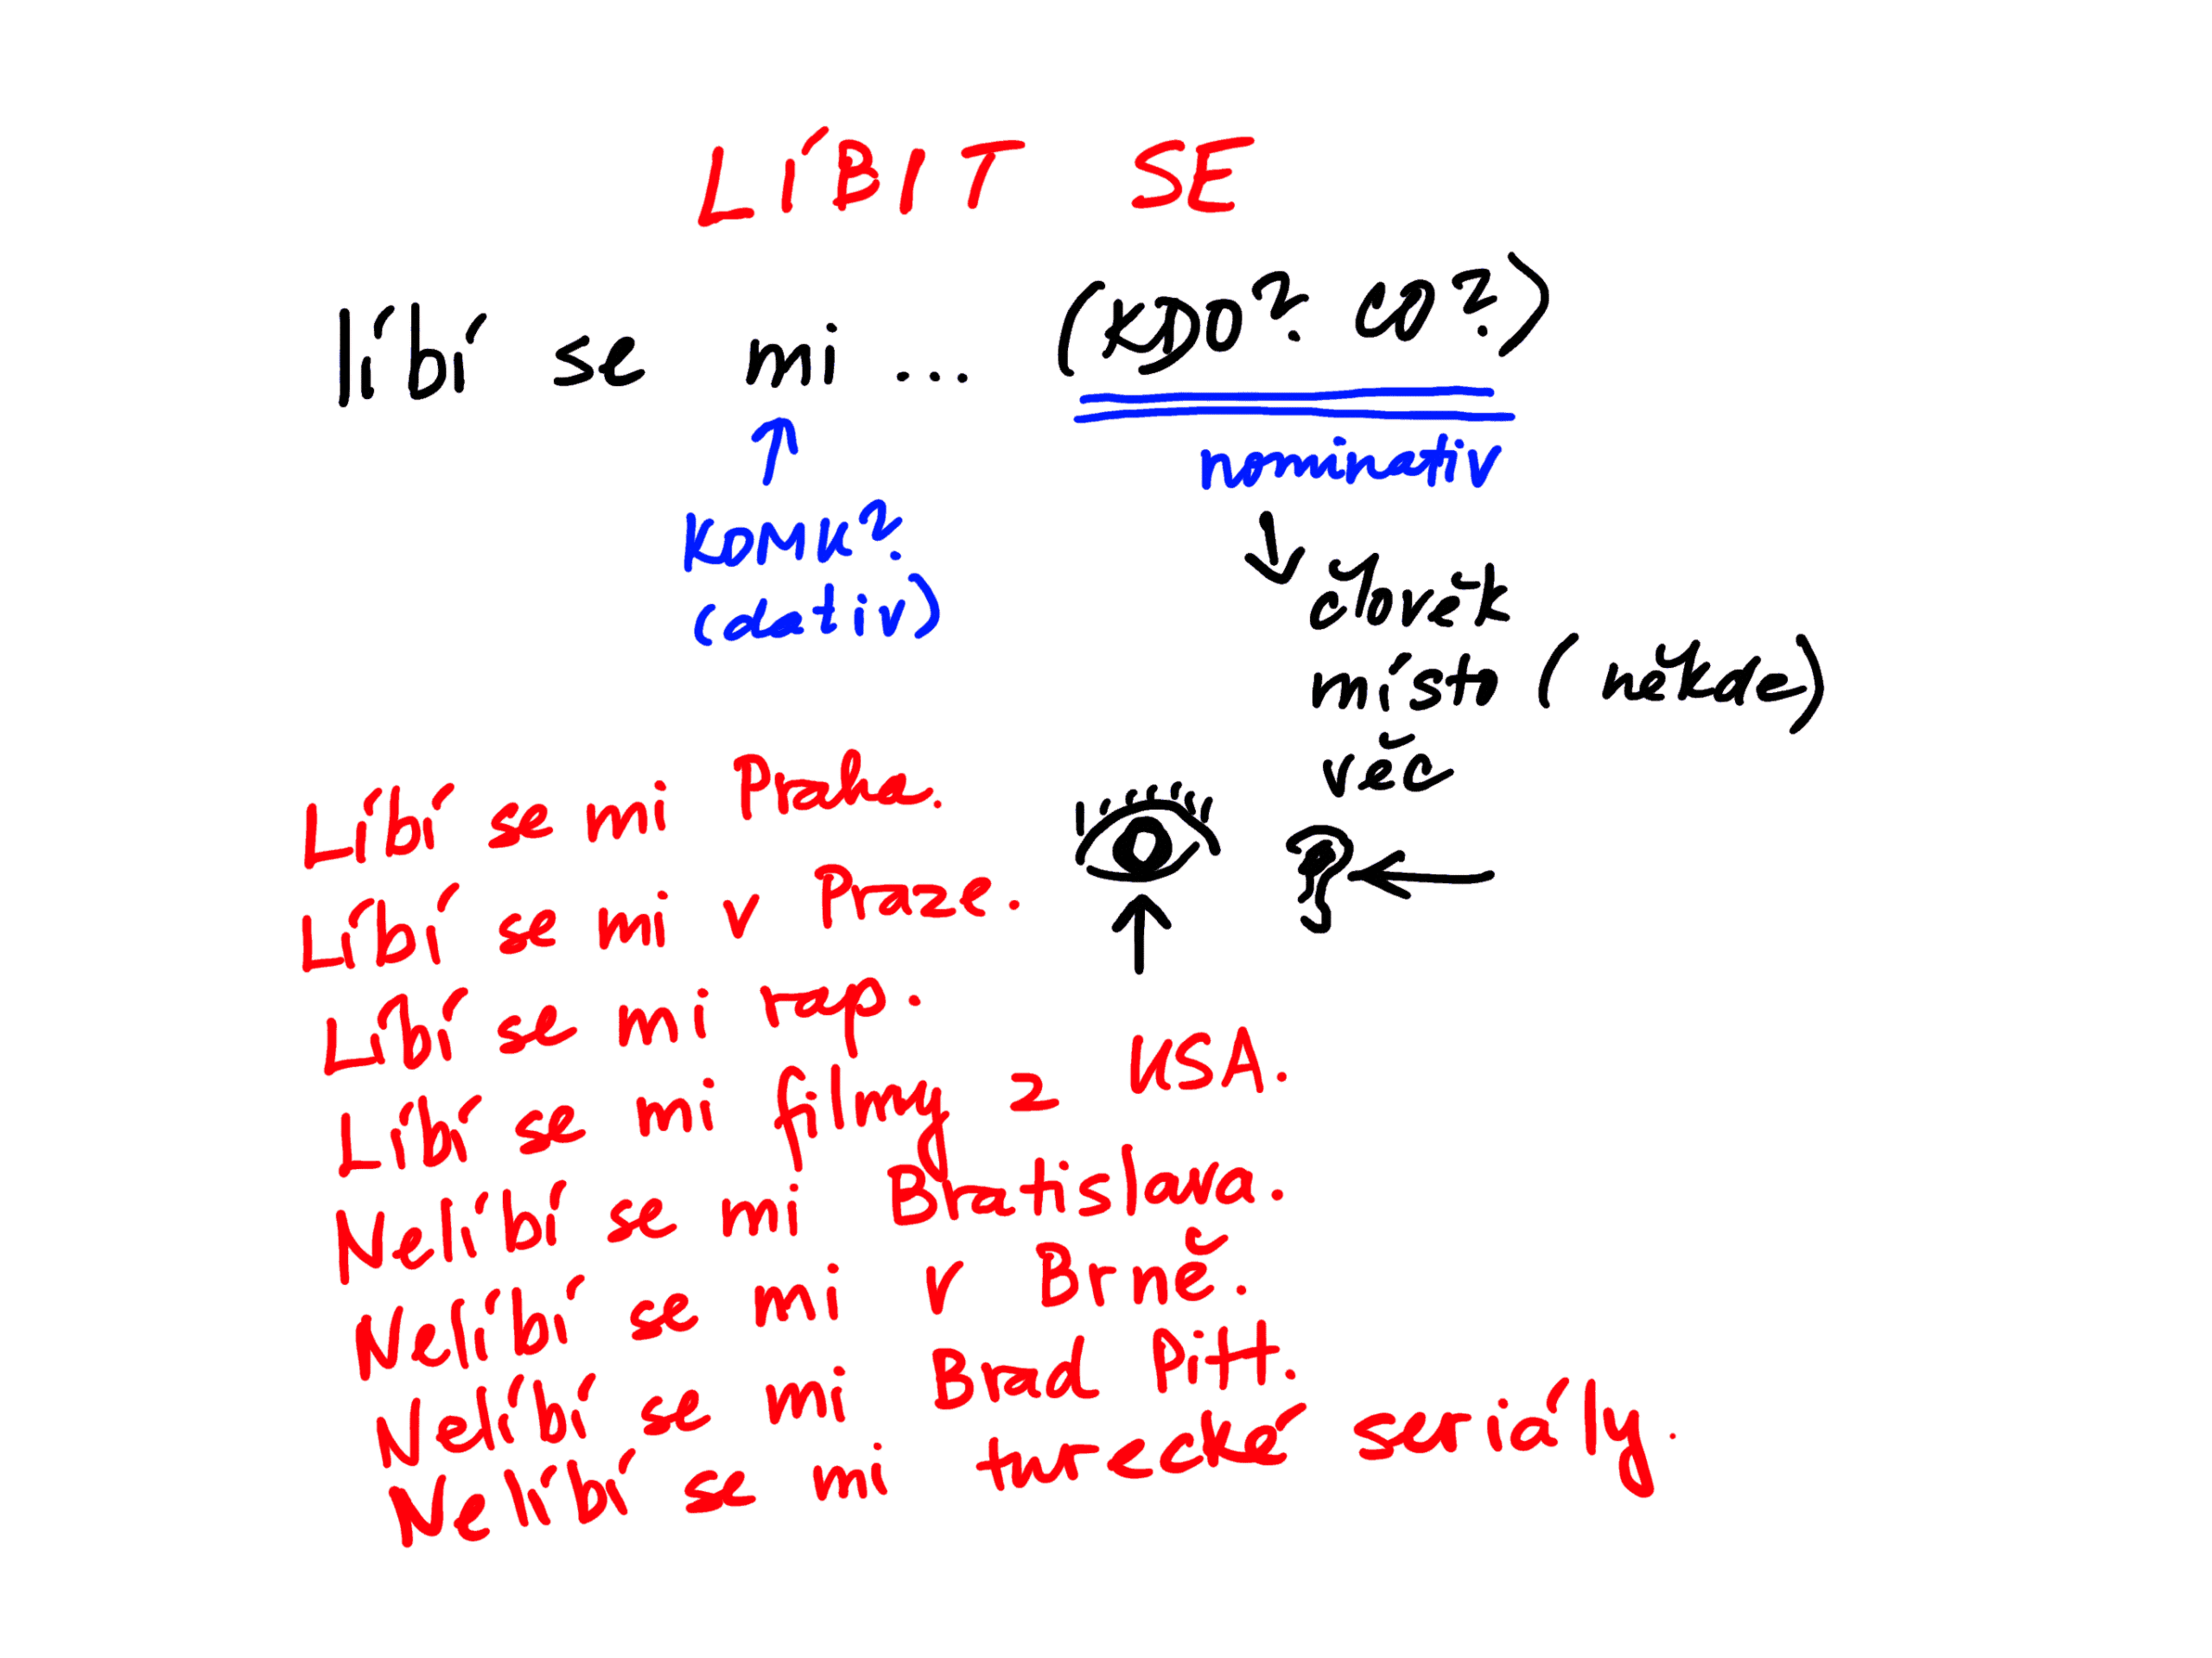 LÍBIT SE
líbí se mi ... (KDO? CO?)
nominativ
KOMU?
(dativ)
člověk
místo (někde)
věc
Líbí se mi Praha.
Líbí se mi v Praze.
Líbí se mi rap.
Líbí se mi filmy z USA.
Nelíbí se mi Bratislava.
Nelíbí se mi v Brně.
Nelíbí se mi Brad Pitt.
Nelíbí se mi turecké seriály.